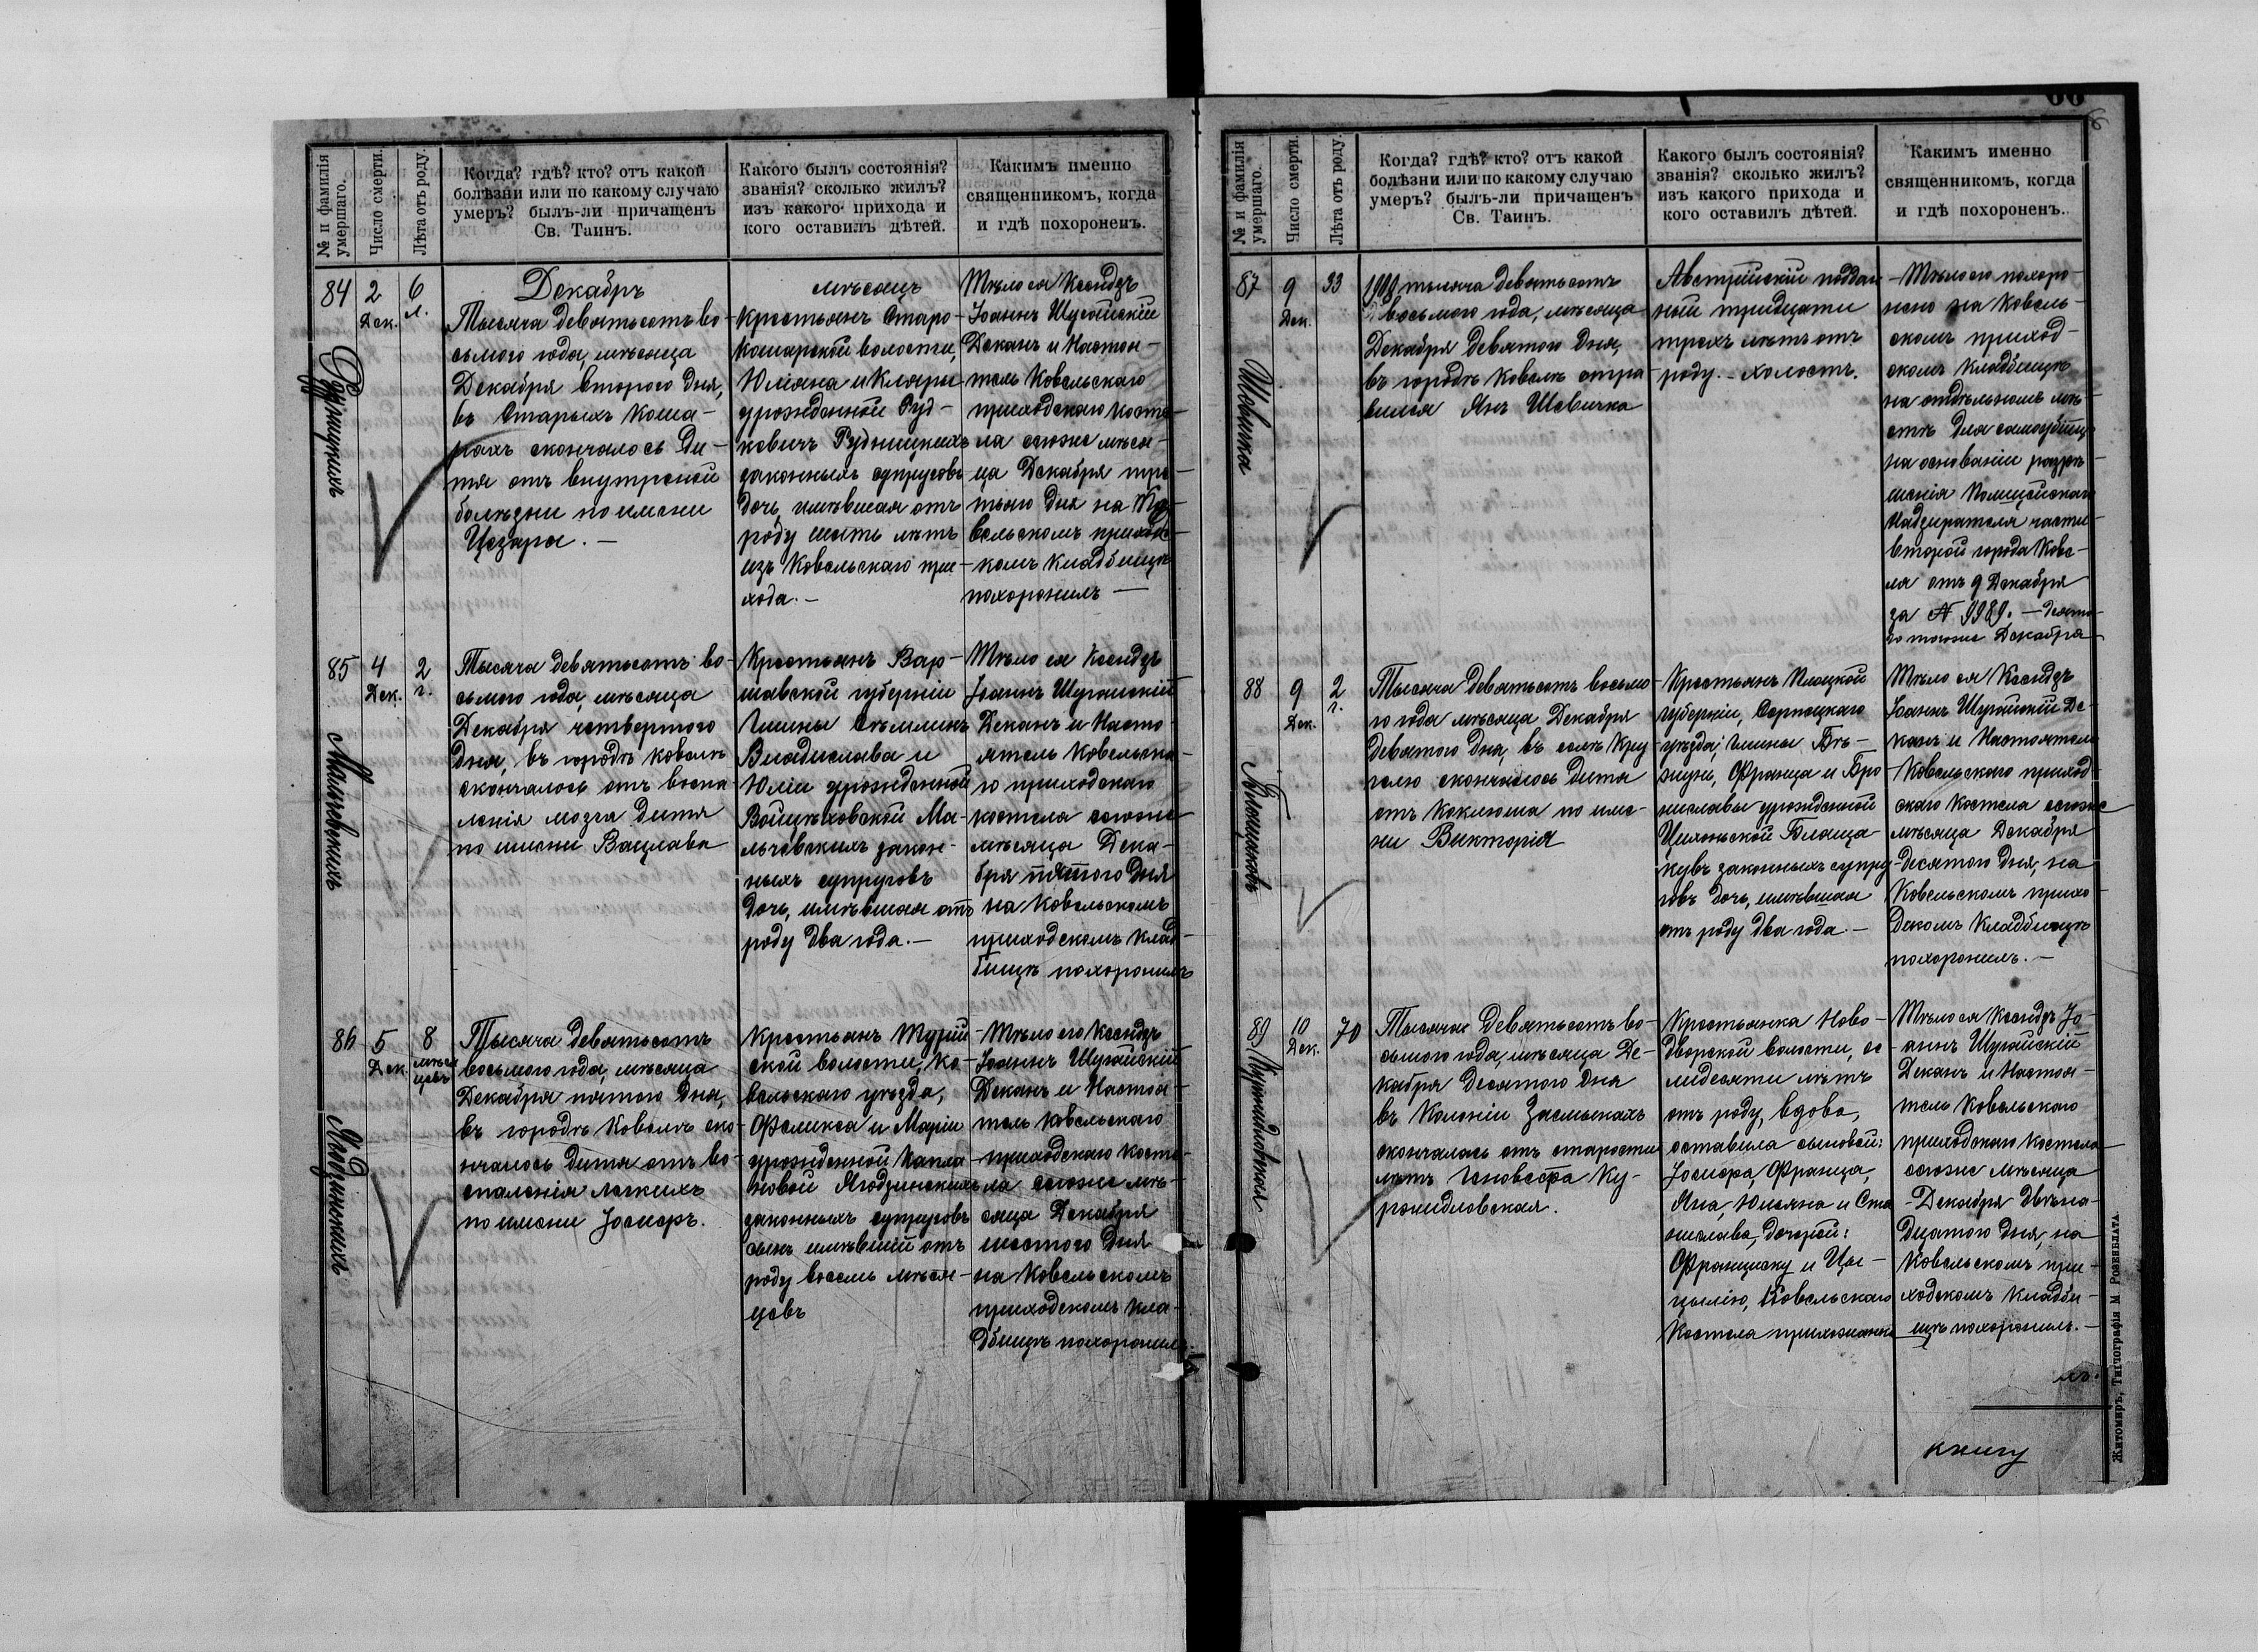 № и фамилія умершаго.
Число смерти.
Лѣта отъ роду.
Когда? гдѣ? кто? отъ какой
болѣзни или по какому случаю
умеръ? былъ-ли причащенъ
Св. Таинъ.
Какого былъ состоянія?
званія? сколько жилъ?
изъ какого прихода и
кого оставилъ дѣтей.
Какимъ именно
священникомъ, когда
и гдѣ похороненъ.
84
Рудницкихъ
2
Дек.
6
л.
Декабрь
Тысяча девятьсотъ во-
сьмого года, мѣсяца
Декабря второго дня,
въ Старыхъ Коша-
рахъ скончалось Ди-
тя отъ внутреной
болѣзни по имени
Цезара. —
мѣсяцъ
Крестьянъ Старо-
кошарской волости,
Юліана и Кляры
урожденной Руд-
кевичъ Рудницкихъ
законныхъ супруговъ
дочь, имѣвшая отъ
роду шесть лѣтъ
изъ Ковельскаго при-
хода. —
Тѣло ея Ксендзъ
Іоаннъ Шугайскій
Деканъ и Настоя-
тель Ковельскаго
приходскаго косте-
ла сегоже мѣся-
ца Декабря тре-
тьяго дня на Ко-
вельскомъ приходс-
комъ кладбищѣ
похоронилъ —
85
Мальчевскихъ
4
Дек.
2
г.
Тысяча девятьсотъ во-
сьмого года, мѣсяца
Декабря четвертого
дня, въ городѣ Ковелѣ
скончалось отъ воспа-
ленія мозга дитя
по имени Вацлава
Крестьянъ Вар-
шавской губерніи
Гмины
Владислава и
Юліи урожденной
Войцѣховской Ма-
льчевскихъ закон-
ныхъ супруговъ
дочь, имѣвшая отъ
роду два года. —
Тѣло ея Ксендзъ
Іоаннъ Шугайскій
Деканъ и Насто-
ятель Ковельска-
го приходскаго
костела сегоже
мѣсяца Дека-
бря пятого дня
на Ковельскомъ
приходскомъ клад-
бищѣ похоронилъ
86
Ягодзинскихъ
5
Дек.
8
мѣся
цевъ
Тысяча девятьсотъ
восьмого года, мѣсяца
Декабря пятого дня,
въ городѣ Ковелѣ ско-
нчалось дитя отъ во-
спаленія легкихъ
по имени Іосифъ.
Крестьянъ Турій-
ской волости, Ко-
вельскаго уѣзда,
Феликса и Маріи
урожденной Капла-
новой Ягодзинскихъ
законныхъ супруговъ
сынъ имѣвшій отъ
роду восемь мѣся-
цевъ
Тѣло его Ксендзъ
Іоаннъ Шугайскій
Деканъ и Настоя-
тель Ковельскаго
приходскаго косте-
ла сегоже мѣ-
сяца Декабря
шестого дня
на Ковельскомъ
приходскомъ кла-
дбищѣ похоронилъ.
№ и фамилія умершаго.
Число смерти.
Лѣта отъ роду.
Когда? гдѣ? кто? отъ какой
болѣзни или по какому случаю
умеръ? былъ-ли причащенъ
Св. Таинъ.
Какого былъ состоянія?
званія? сколько жилъ?
изъ какого прихода и
кого оставилъ дѣтей.
Какимъ именно
священникомъ, когда
и гдѣ похороненъ.
87
Шевичка
9
Дек.
33
тысяча девятьсотъ
восьмого года, мѣсяца
Декабря девятого дня,
въ городѣ Ковелѣ отра-
вился Янъ Шевичка
Австрійскій поддан-
ный тридцати
трехъ лѣтъ отъ
роду. — холостъ.
Тѣло его похоро-
нено на Ковель-
скомъ приход-
скомъ кладбищѣ
на отдѣльномъ мѣ-
стѣ для самоубійцъ
на основаніи разрѣ-
шенія Полицейскаго
Надзирателя части
второй города Кове-
ля отъ 9 Декабря
за № 9989. — десято-
го тогоже Декабря
88
9
Дек.
2
г.
Тысяча девятьсотъ восьмо-
го года мѣсяца Декабря
девятого дня, въ селѣ Кру-
гелю скончалось дитя
отъ коклюша по име-
ни Викторія
Крестьянъ Плоцкой
губерніи, Серпецкаго
уѣзда, гмины Бѣ-
жунь, Франца и Бро-
ниславы урожденной
законныхъ супру-
говъ дочь, имѣвшая
отъ роду два года —
Тѣло ея Ксендзъ
Іоаннъ Шугайскій Де-
канъ и Настоятель
Ковельскаго приход-
скаго костела сегоже
мѣсяца Декабря
десятого дня, на
Ковельскомъ прихо-
дскомъ кладбищѣ
похоронилъ. —
89
10
Дек.
70
Тысяча девятьсотъ во-
сьмого года, мѣсяца Де-
кабря десятого дня
въ Колоніи Засмыкахъ
скончалась отъ старости
лѣтъ Геновефа Ку-
Крестьянка Ново-
дворской волости, се-
мидесяти лѣтъ
отъ роду, вдова,
оставила сыновей:
Іосифа, Франца,
Яна, Юльяна и Ста-
нислава, дочерей:
Францишку и Це-
цылію, Ковельскаго
Костела прихожанка
Тѣло ея Ксендзъ Іо-
аннъ Шугайскій
Деканъ и Настоя-
тель Ковельскаго
приходскаго Костела
сегоже мѣсяца
Декабря двѣна-
дцатого дня, на
Ковельскомъ при-
ходскомъ кладби-
щѣ похоронилъ. —
книгу
Житомиръ, Типографія М. Розенблата.